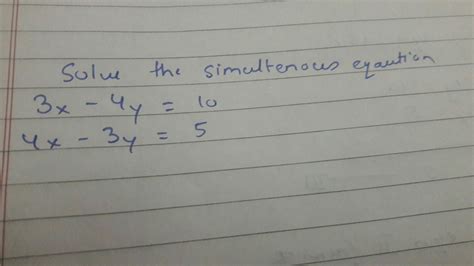 Solve the simultenous eqaution
3x - 4y = 10
4x - 3y = 5